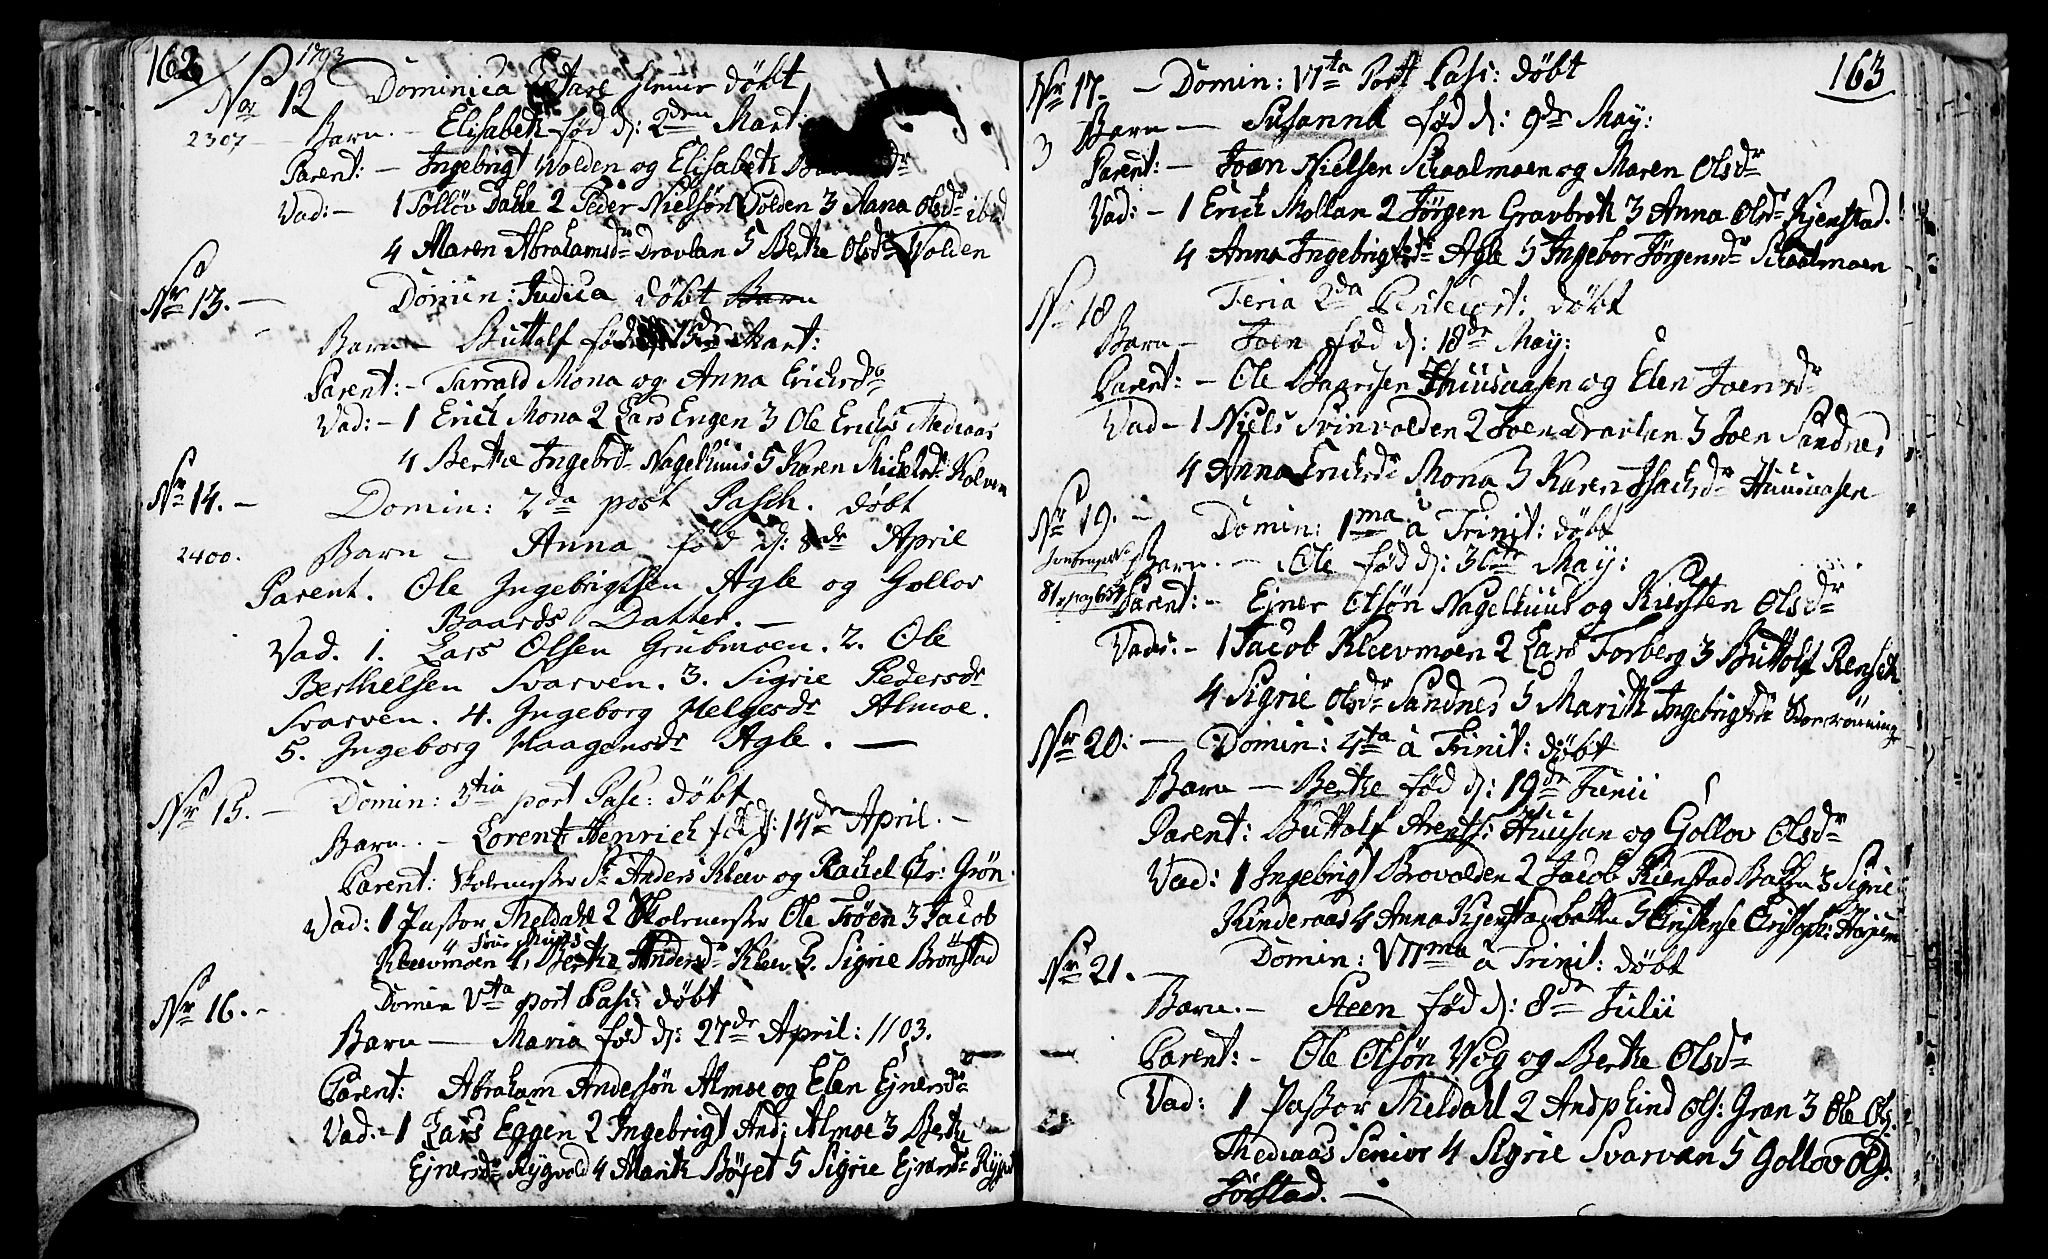 162
1793
No 12 Dominica Lætare døbt
2307 Barn - Elisabeth fød d: 2den Mart:
Parent: - Ingebrigt Wolden og Elisabeth
Vad: - 1 Tolløv Dahle 2 Peder Nielsøn Volden 3 Anna Olsdr ibid
4 Maren Abrahamsdr Dravlan 5 Berthe Olsdr Volden
Nr 13. - Domin: Judica døbt Barn
Barn - Buttolf fød Mart:
Parent: - Tarrald Mona og Anna Ericksdr
Vad: - 1 Erick Mona 2 Lars Engen 3 Ole Ericks Thediaas
4 Berthe Ingebrdr Nagelhuus 5 Karen Mickelsdr Kolven
Nr 14. - Domin: 2da post Pasch. døbt
2400. Barn - Anna fød d: 8de April
Parent. Ole Ingebrigtsen Agle og Gollov
Baards Datter. -
Vad. 1. Lars Olsen Grubmoen. 2. Ole
Berthelsen Svarven. 3. Sigrie Pedersdr
Svarven. 4. Ingeborg Helgesdr Almoe.
5. Ingeborg Haagensdr Agle. -
Nr 15. - Domin: 3tia post Pasc: døbt
Barn. - Lorentz Henrich fød d: 14de April. -
Parent: Skolemester Sr Anders Kleev og Rachel Chr: Grøn.
Vad: 1 Pastor Meldahl 2 Skolemester Ole Trøen 3 Jacob
Kleevmoen 4, Berthe Andersdr Kleev 5. Sigrie Brønstad
Nr 16. - Domin Vta post Pasc: døbt
Barn - Maria fød d: 27de April: 1103.
Parent: Abraham Andersøn Almoe og Elen Ejnersdr
Vad. - 1 Lars Eggen 2 Ingebrigt And: Almoe 3 Berthe
Ejnersdr Rygvold 4 Marith Bøjet 5 Sigrie Ejnersdr
163
Nr 17. - Domin: VIta Post Pasc: døbt
3 Barn - Susanna fød d: 9de May:
Parent: - Joen Nielsen Skaalmoen og Maren Olsdr
Vad: - 1 Erick Mollan 2 Jørgen Gravbrøt 3 Anna Olsdr Kjenstad.
4 Anna Ingebrigtsdr Agle 5 Ingebor Jørgensdr Skaalmoen
Nr 18 Feria 2da Pentecost: døbt
Barn - Joen fød d: 18de May:
Parent: - Ole Baardsen Huusaasen og Elen Joensdr
Vad - 1 Niels Svinvolden 2 Joen Dravlan 3 Joen Sandnes
4 Anna Ericksdr Mona 5 Karen Isacksdr Huusaasen
Nr 19. - Domin: 1ma à Trinit: døbt
Barn. - Ole fød d: 30de May:
Parent: - Ejner Olsøn Nagelhuus og Kiersten Olsdr
Vad: - 1 Jacob Kleevmoen 2 Lars Forberg 3 Buttolf Rensch.
4 Sigrie Olsdr Sandnes 5 Marith Ingebrigtsdr
Nr 20: - Domin: 4ta à Trinit: døbt
Barn - Berthe fød d: 19de Junii
Parent: Buttolf Arents: Huusan og Gollov Olsdr
Vad: 1 Ingebrigt Brovolden 2 Jacob Kienstad Bakken 3 Sigrie
Kinderaas 4 Anna Kjenstadbakken 5 Christoph:
Nr 21. - Domin: VIIma à Trinit: døbt
Barn. - Steen fød d: 8de Julii
Parent: - Ole Olsøn Vog og Berthe Olsdr
Vad: 1 Pastor Meldahl 2 Andphind Ols: Gran 3 Ole Ols.
Thediaas Senior 4 Sigrie Svarvan 5 Gollov Ols.
Jørstad. -